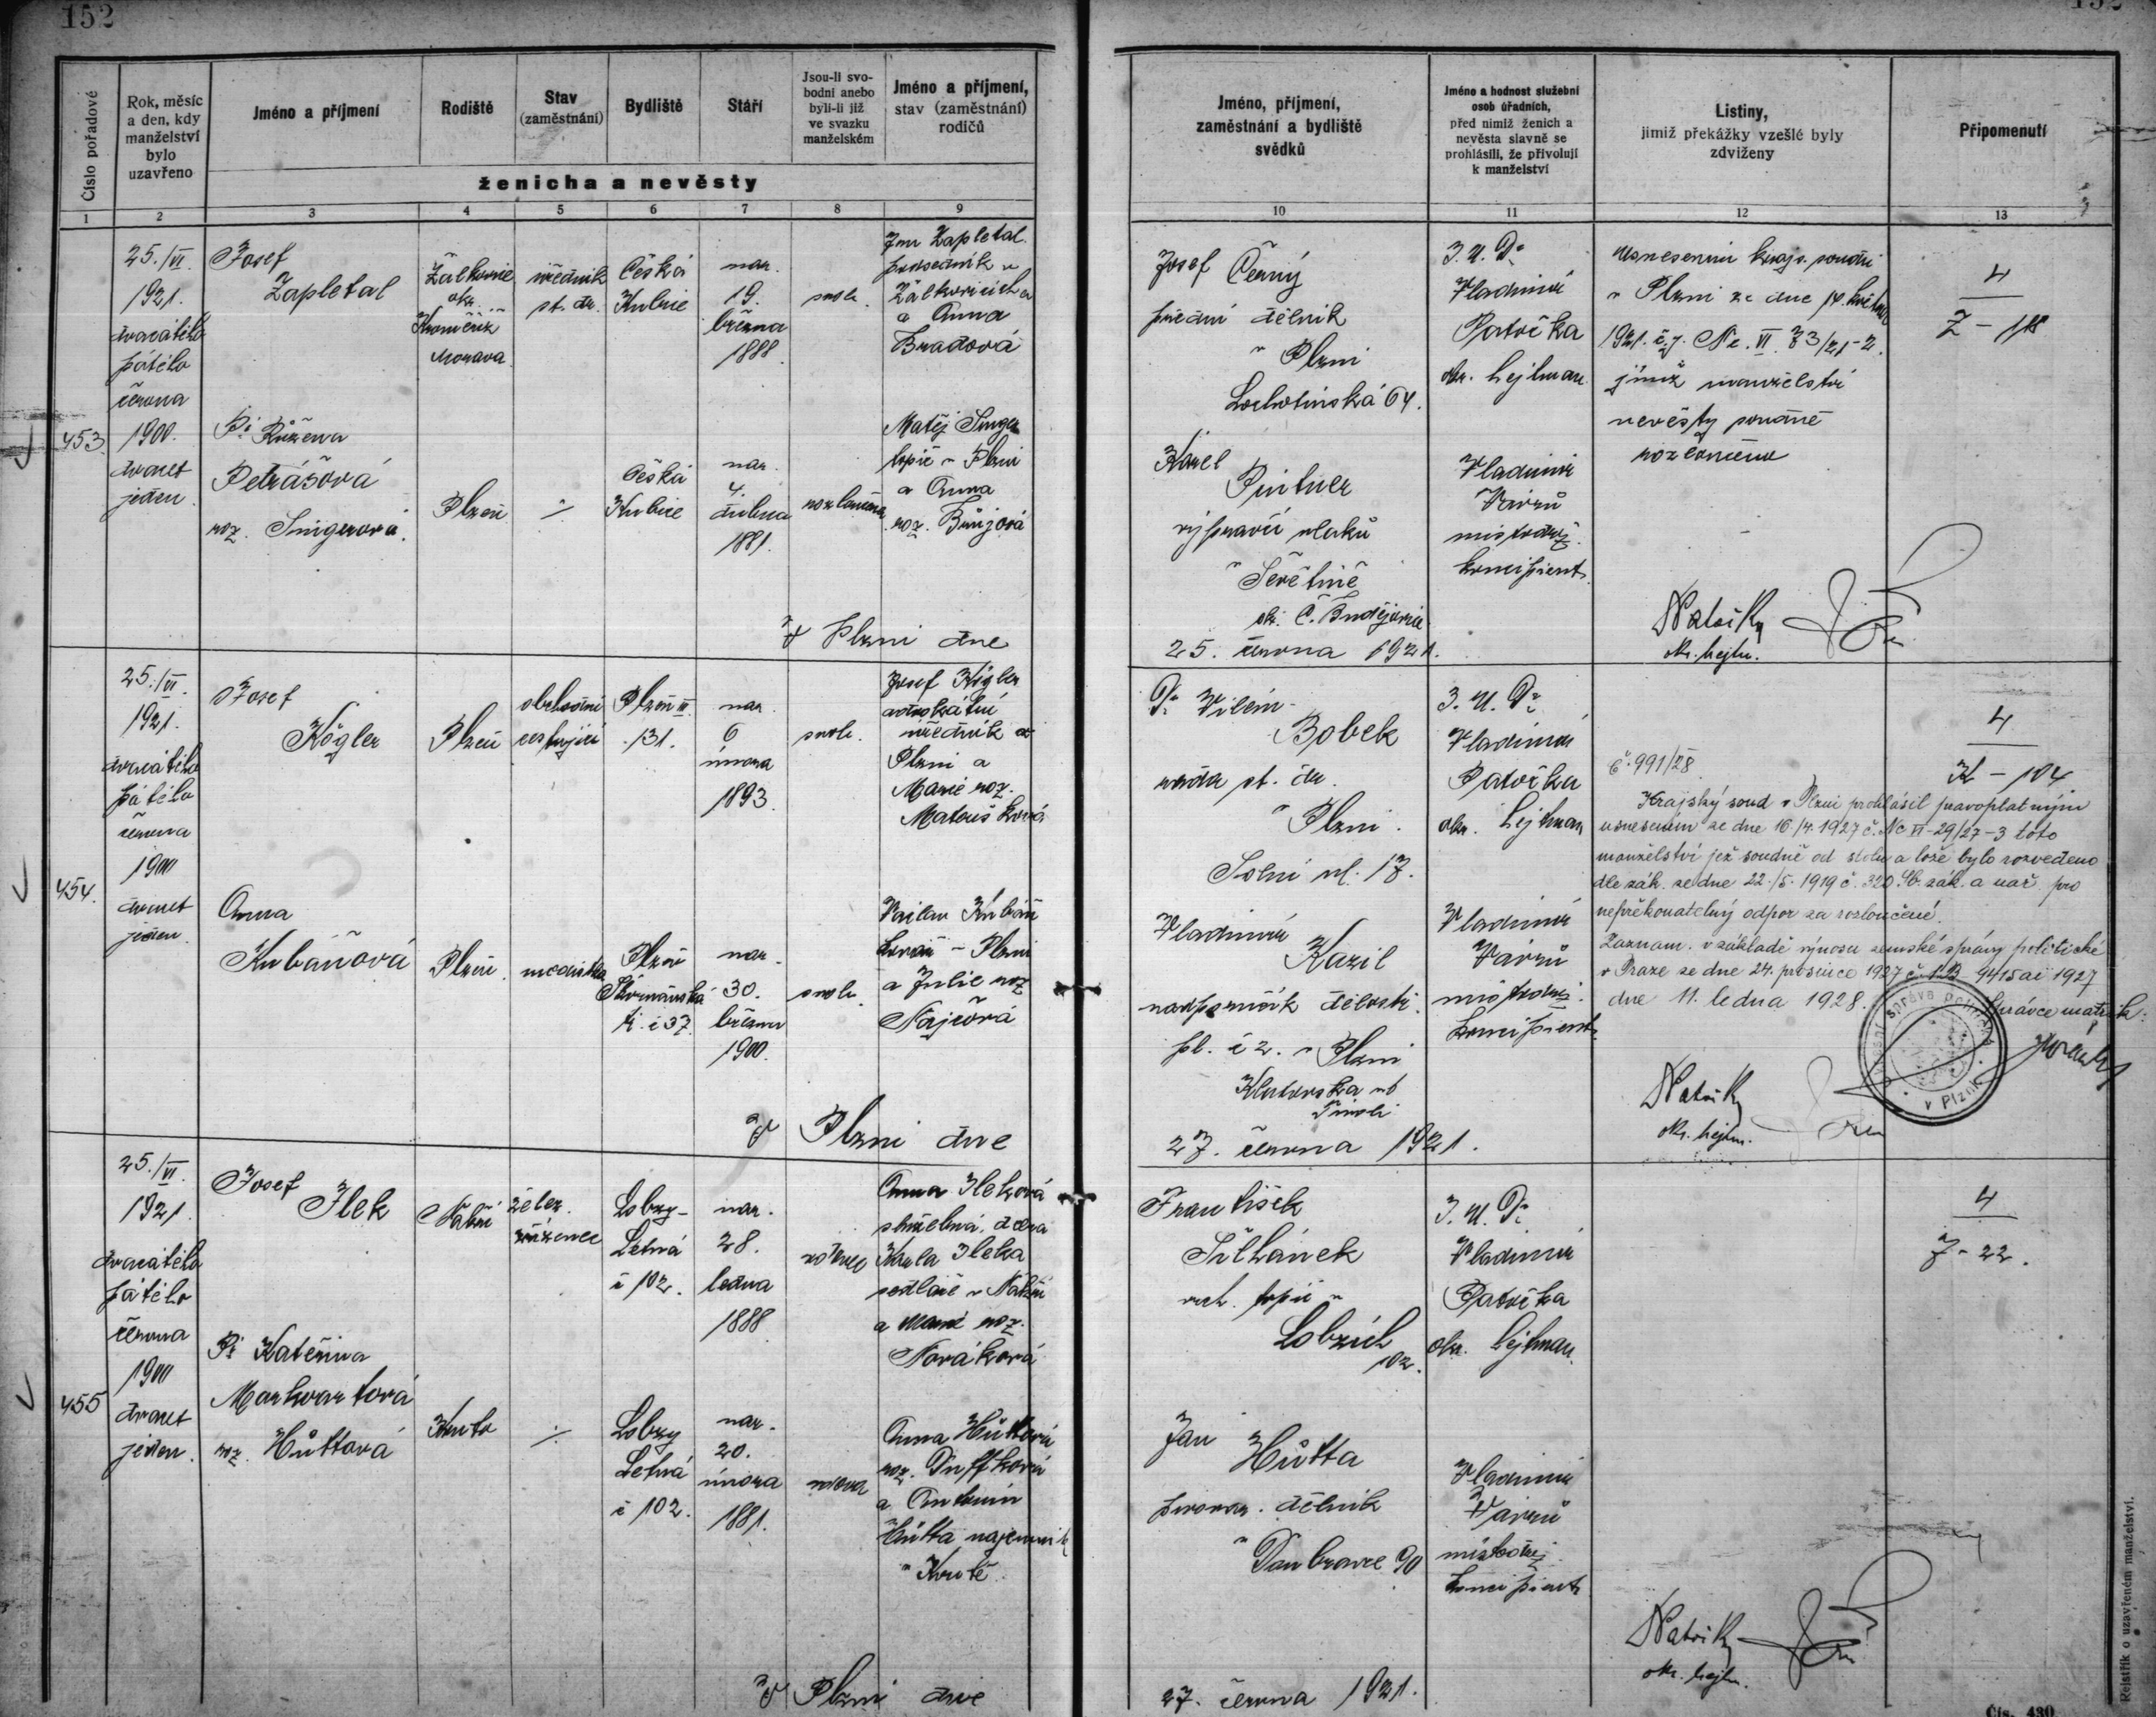 152
152
Číslo pořadové
Rok, měsíc
a den, kdy
manželství
bylo
uzavřeno
Jméno a příjmení
Rodiště
Stav
(zaměstnání)
Bydliště
Stáří
Jsou-li svo-
bodni anebo
byli-li již
ve svazku
manželském
Jméno a příjmení,
stav (zaměstnání)
rodičů
ženicha a nevěsty
Jméno, příjmení,
zaměstnání a bydliště
svědků
Jméno a hodnost služební
osob úřadních,
před nimiž ženich a
nevěsta slavně se
prohlásili, že přivolují
k manželství
Listiny,
jimiž překážky vzešlé byly
zdviženy
Připomenutí
1 2 3 4 5 6 7 8 9 10 11 12 13
453.
25./VI.
1921.
dvacátého
pátého
června
1900.
dvacet
jeden.
Josef
Zapletal
Žalkovice
okr.
Kroměříž
Morava.
úředník
st. dr.
Česká
Kubice
nar.
19.
března
1888.
svob.
Jan Zapletal
a Anna
Bradová
Pí Růžena
Petrášová
roz. Singerová.
Plzeň
Česká
Kubice
nar.
4.
dubna
1881.
rozloučena
Matěj Singer
topič v Plzni
a Anna
roz.
V Plzni dne
Josef Černý
dělník
v Plzni
Lochotínská 64.
Karel
Pintner
výpravčí vlaků
v Ševětíně
okr. Č. Budějovice
25. června 1921.
J. U. Dr
Vladimír
Patočka
okr. hejtman.
Vladimír
Vávrů
místodrž.
koncipient.
Usnesením krajs. soudu
v Plzni ze dne 14. května
1921. č. j. Nc. VI. 83/21-2.
jímž manželství
nevěsty soudně
rozloučeno
okr. hejtm.
4
Z - 118
454.
25./VI.
1921.
dvacátého
pátého
června
1900
dvacet
jeden.
Josef
Kögler
Plzeň
obchodní
cestující
Plzeň III
131.
nar.
6
února
1893.
svob.
Josef Kögler
advokátní
úředník v
Plzni a
Marie roz.
Matoušková
Anna
Kubáňová
Plzeň.
modistka
Plzeň
č. 37.
nar.
30.
března
1900.
svob.
Václav Kubáň
kovář v Plzni
a Julie roz
V Plzni dne
Dr Vilém
Bobek
rada st. dr.
v Plzni.
Solní ul. 17.
Vladimír
Kazil
nadporučík dělostř.
pl. č 2. v Plzni
27. června 1921.
J. U. Dr
Vladimír
Patočka
okr. hejtman
Vladimír
Vávrů
místodrž.
koncipient.
č. 991/28
Krajský soud v Plzni prohlásil pravoplatným
usnesením ze dne 16./4. 1927 č. Nc VI-29/27-3 toto
manželství jež soudně od stolu a lože bylo rozvedeno
dle zák. ze dne 22./5. 1919 č. 320 Sb. zák. a nař. pro
nepřekonatelný odpor za rozloučené.
Zaznam. v základě výnosu zemské správy politické
v Praze ze dne 24. prosince 1927 č. 9415 ai 1927
dne 11. ledna 1928.
Správce matrik:
správa politická
v Plzni
okr. hejtm.
4
K - 104
455
25./VI.
1921.
dvacátého
pátého
června
1900
dvacet
jeden.
Josef
Ilek
Nákří
želez.
zřízenec
Lobzy-
Letná
č 102.
nar.
28.
ledna
1888
vdovec
Anna Ileková
služebná, dcera
Karla Ileka
sedláře v Nákří
a Marie roz.
Nováková
Pí Kateřina
Markvartová
roz. Hůttová
Kruto
Lobzy
Letná
č 102.
nar.
20.
února
1881.
vdova
Anna Hůttová
a Antonín
Hůtta nájemník
V Plzni dne
František
Lobzích
102.
Jan
Hůtta
pivovar. dělník
v Doubravce 90
27. června 1921.
J. U. Dr
Vladimír
Patočka
okr. hejtman.
Vladimír
Vávrů
místodrž.
koncipient
okr. hejtm.
4
J - 22.
Rejstřík o uzavřeném manželství.
Čís. 430